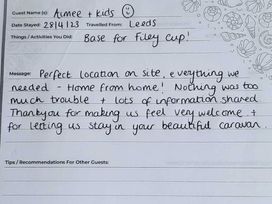 Guest Name (s): Aimee + kids
Date Stayed: 28/4/23 Travelled From: Leeds
Things / Activities You Did: Base for Filey Cup!
Message: Perfect location on site, everything we
needed - Home from home! Nothing was too
much trouble + lots of information shared
Thankyou for making us feel very welcome +
for letting us stay in your beautiful caravan.
Tips / Recommendations For Other Guests: